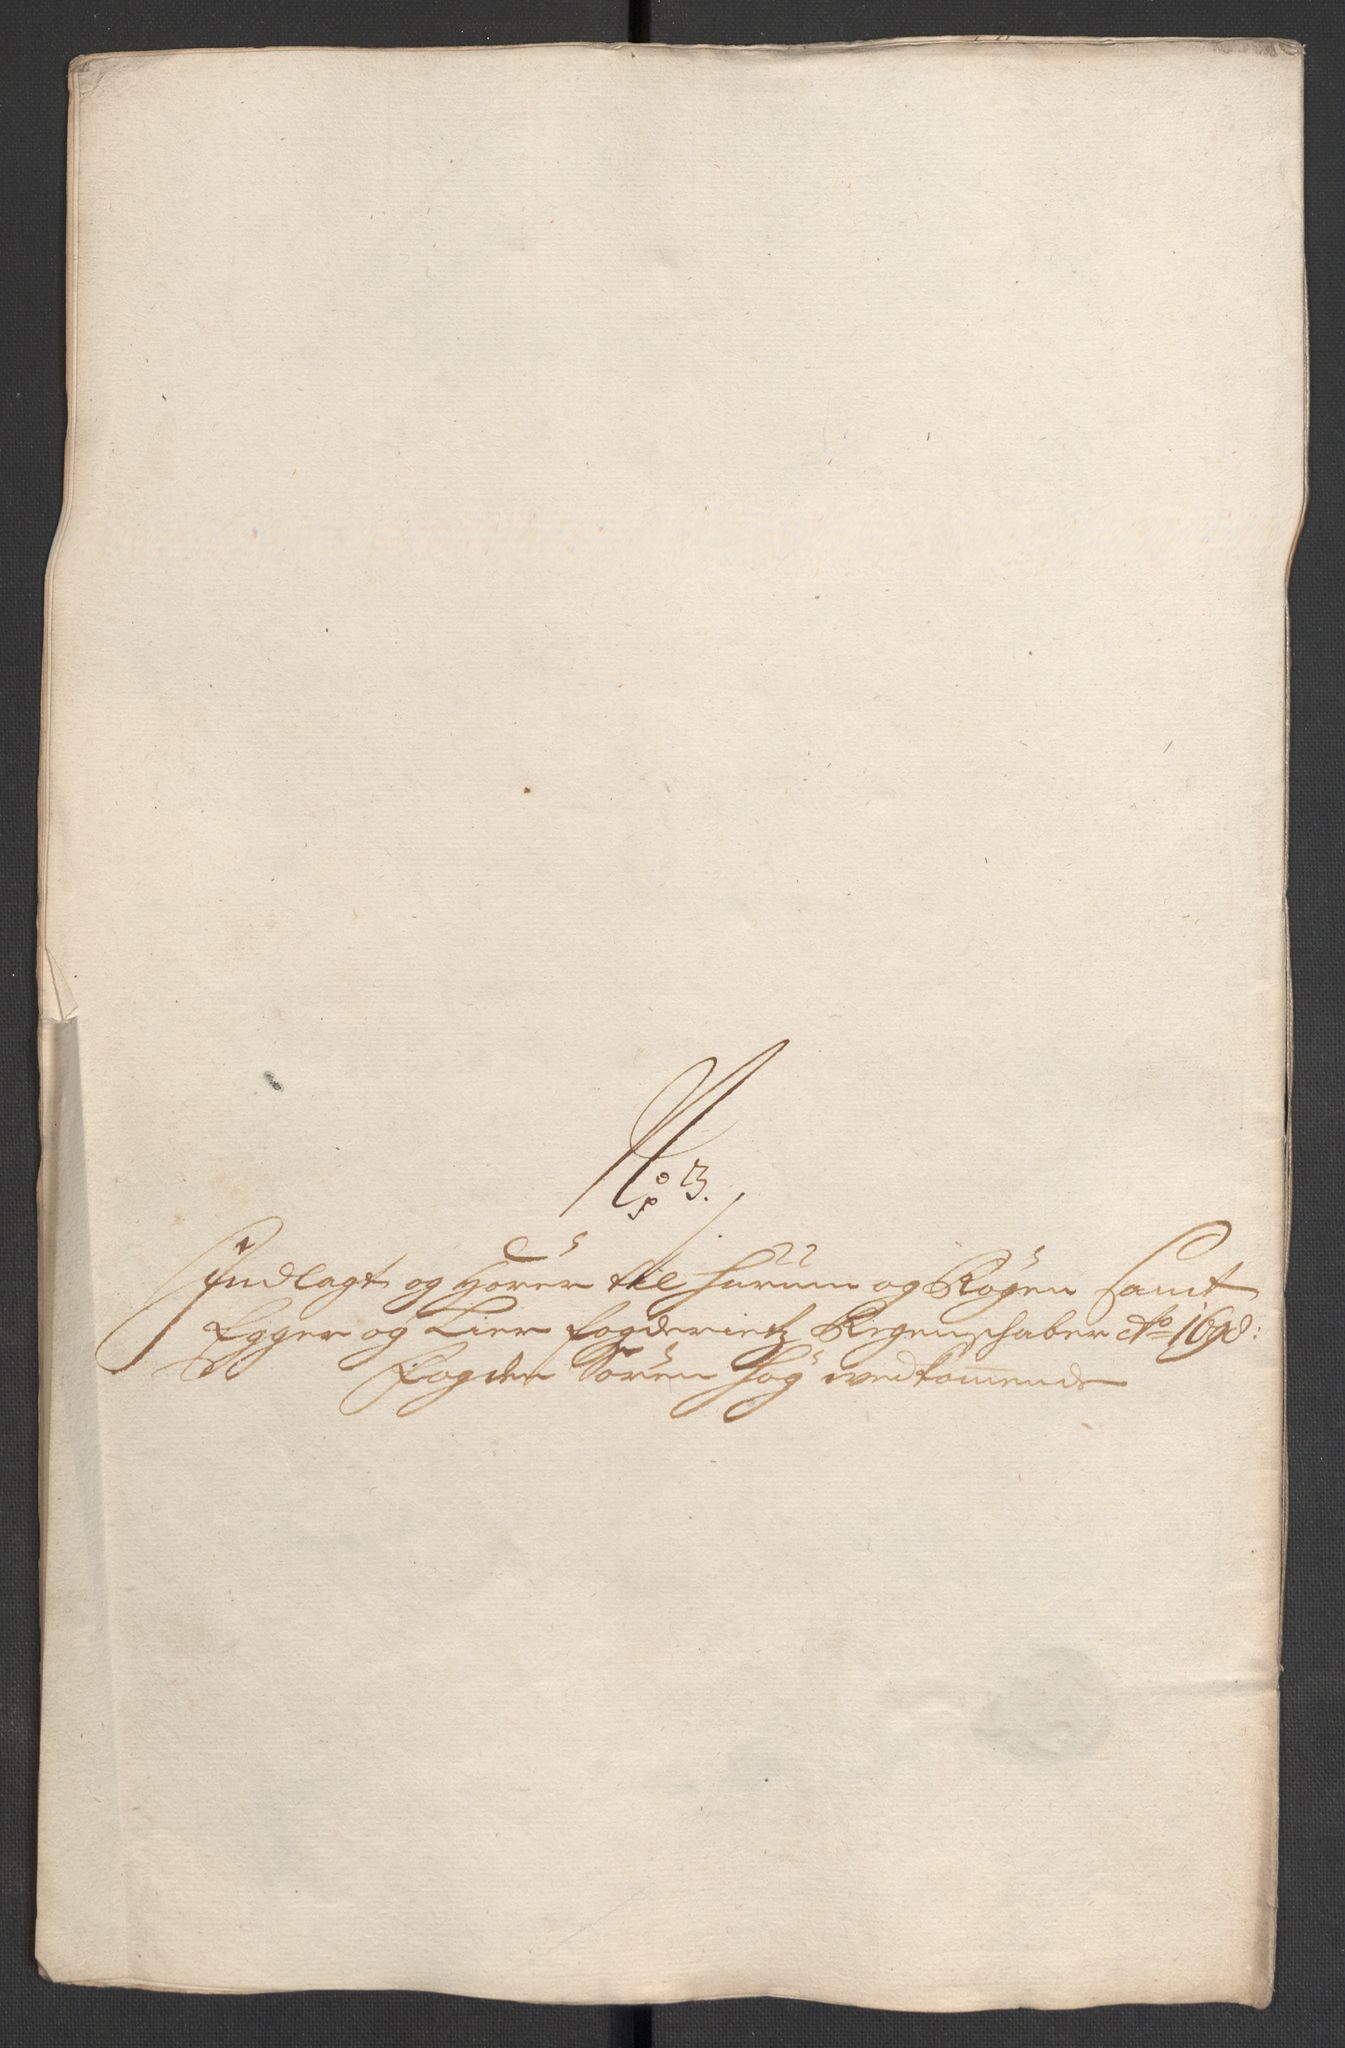 No 3.
Indlagt og Hörer til Hurum og Rögen samt
Egger og Lier fogderietz Regenschaber Ao 1698:
Fogden Sören Hög vedkom̄ende